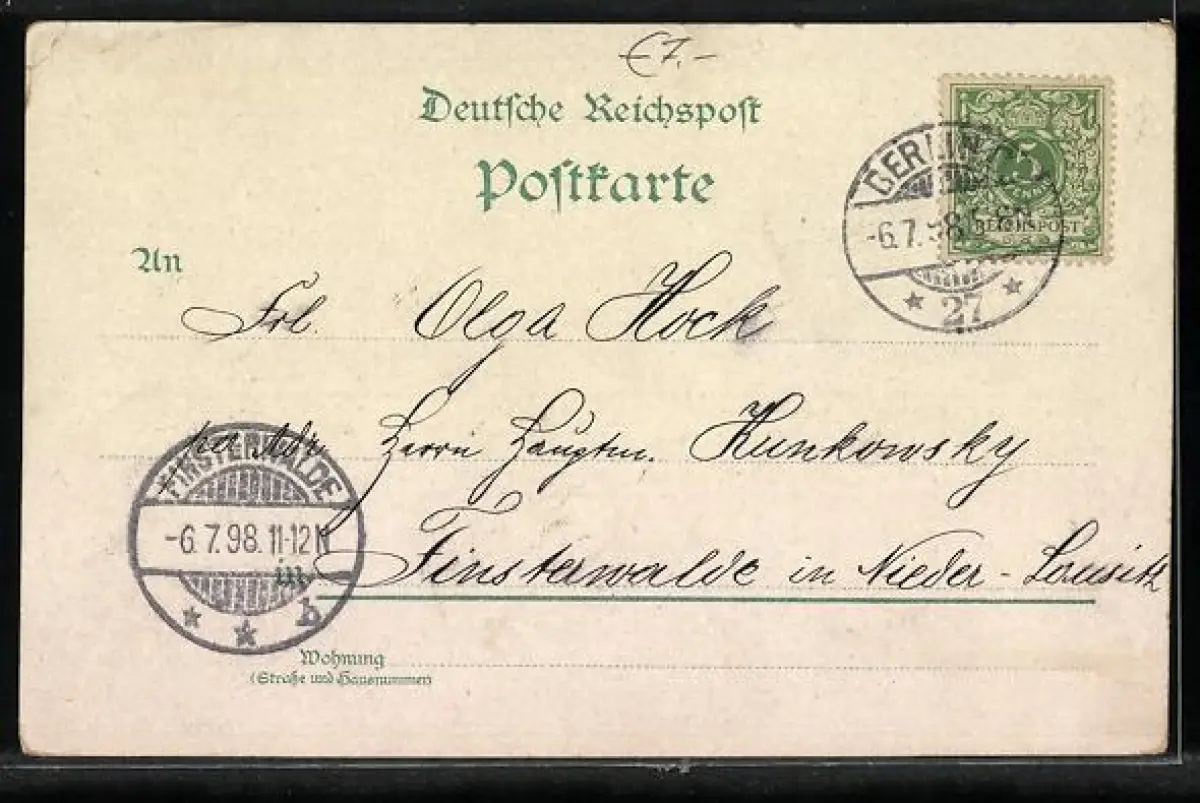 € 7.-
Deutsche Reichspost
Postkarte
5
REICHSPOST
BERLIN
-6.7.98. 5-6N
27
An
Frl. Olga Hock
per Adr. Herrn Hauptm. Kunkowsky
Finsterwalde in Nieder-Lausitz
FINSTERWALDE
-6.7.98.11-12N
b
in
Wohnung
(Straße und Hausnummer)